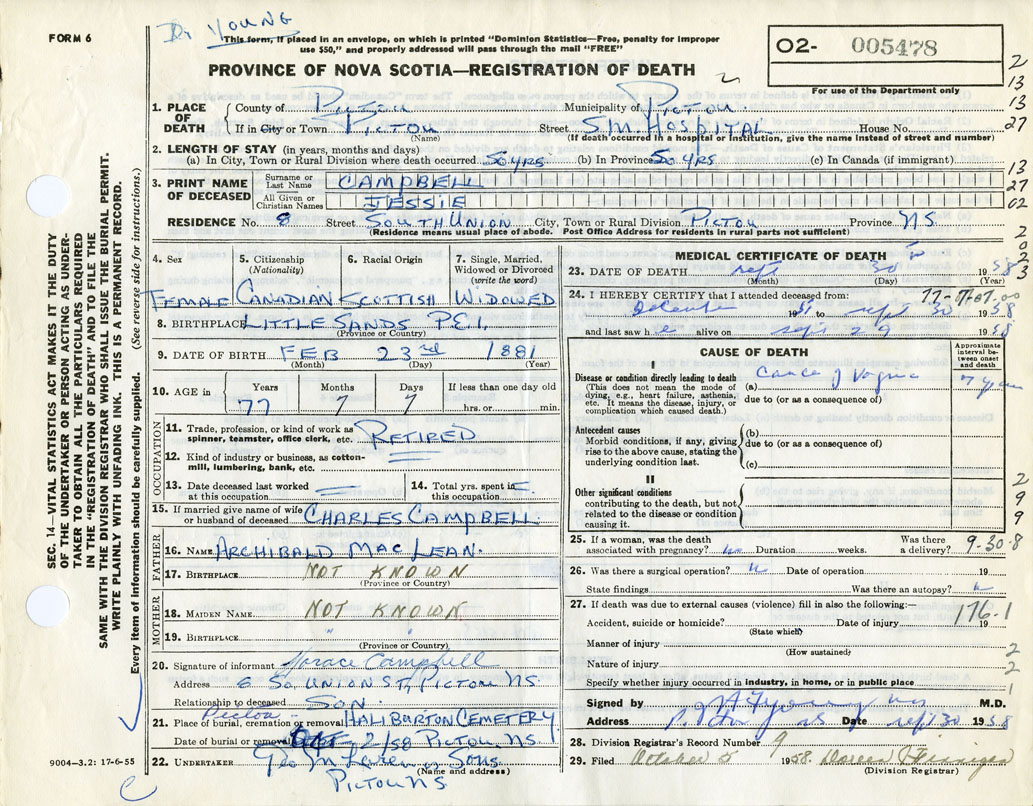 Dr YOUNG
FORM 6
This form, if placed in an envelope, on which is printed "Dominion Statistics—Free, penalty for improper
use $50," and properly addressed will pass through the mail "FREE"
O2- 005478
PROVINCE OF NOVA SCOTIA—REGISTRATION OF DEATH
For use of the Department only
1. PLACE OF DEATH County of PICTOU Municipality of PICTOU
If in City or Town PICTOU Street S.M. HOSPITAL House No.
(Name) (If death occurred in a hospital or institution, give the name instead of street and number)
2. LENGTH OF STAY (in years, months and days)
(a) In City, Town or Rural Division where death occurred 50 YRS (b) In Province 50 YRS (c) In Canada (if immigrant)
3. PRINT NAME OF DECEASED
Surname or Last Name CAMPBELL
All Given or Christian Names JESSIE
RESIDENCE No. 8 Street SOUTH UNION City, Town or Rural Division PICTOU Province N.S
(Residence means usual place of abode. Post Office Address for residents in rural parts not sufficient)
2
13
13
27
13
27
02
2
0
2
3
4. Sex 5. Citizenship (Nationality) 6. Racial Origin 7. Single, Married, Widowed or Divorced (write the word)
FEMALE CANADIAN SCOTTISH WIDOWED
8. BIRTHPLACE LITTLE SANDS P.E.I.
(Province or Country)
9. DATE OF BIRTH FEB 23rd 1881
(Month) (Day) (Year)
10. AGE in Years Months Days If less than one day old
77 7 7 hrs. or min.
OCCUPATION
11. Trade, profession, or kind of work as spinner, teamster, office clerk, etc. RETIRED
12. Kind of industry or business, as cotton-mill, lumbering, bank, etc.
13. Date deceased last worked at this occupation
14. Total yrs. spent in this occupation
15. If married give name of wife or husband of deceased CHARLES CAMPBELL
FATHER
16. NAME ARCHIBALD MAC LEAN.
17. BIRTHPLACE NOT KNOWN
(Province or Country)
MOTHER
18. MAIDEN NAME NOT KNOWN
19. BIRTHPLACE " "
(Province or Country)
20. Signature of informant Horace Campbell
Address 8 So. UNION ST, PICTOU N.S.
Relationship to deceased SON
21. Place of burial, cremation or removal Pictou HALIBURTON CEMETERY
Date of burial or removal OCT 2/58 PICTOU, N.S.
22. UNDERTAKER Sons
(Name and address)
PICTOU N.S
9004—3.2: 17-6-55
MEDICAL CERTIFICATE OF DEATH
23. DATE OF DEATH Sept 30 1958
(Month) (Day) (Year)
24. I HEREBY CERTIFY that I attended deceased from:
December 1951 to Sept 30 1958
and last saw h e alive on Sept 29 1958
CAUSE OF DEATH
Approximate interval between onset and death
I
Disease or condition directly leading to death (a) Cancer of Vagina 7 years
(This does not mean the mode of dying, e.g., heart failure, asthenia, etc. It means the disease, injury, or complication which caused death.)
due to (or as a consequence of)
Antecedent causes
Morbid conditions, if any, giving rise to the above cause, stating the underlying condition last.
(b)
due to (or as a consequence of)
(c)
II
Other significant conditions
contributing to the death, but not related to the disease or condition causing it.
2
9
9
9
25. If a woman, was the death associated with pregnancy? no Duration weeks. Was there a delivery?
9-30-8
26. Was there a surgical operation? Date of operation 19
State findings Was there an autopsy?
27. If death was due to external causes (violence) fill in also the following:—
176.1
Accident, suicide or homicide? Date of injury 19
(State which)
Manner of injury 2
(How sustained)
Nature of injury 2
Specify whether injury occurred in industry, in home, or in public place 1
Signed by M.D.
Address Pictou NS Date Sept 30 1958
28. Division Registrar's Record Number 9
29. Filed October 5 1958 Doreen
(Division Registrar)
SEC. 14—VITAL STATISTICS ACT MAKES IT THE DUTY
OF THE UNDERTAKER OR PERSON ACTING AS UNDER-
TAKER TO OBTAIN ALL THE PARTICULARS REQUIRED
IN THE "REGISTRATION OF DEATH" AND TO FILE THE
SAME WITH THE DIVISION REGISTRAR WHO SHALL ISSUE THE BURIAL PERMIT.
WRITE PLAINLY WITH UNFADING INK. THIS IS A PERMANENT RECORD.
Every item of information should be carefully supplied. (See reverse side for instructions.)